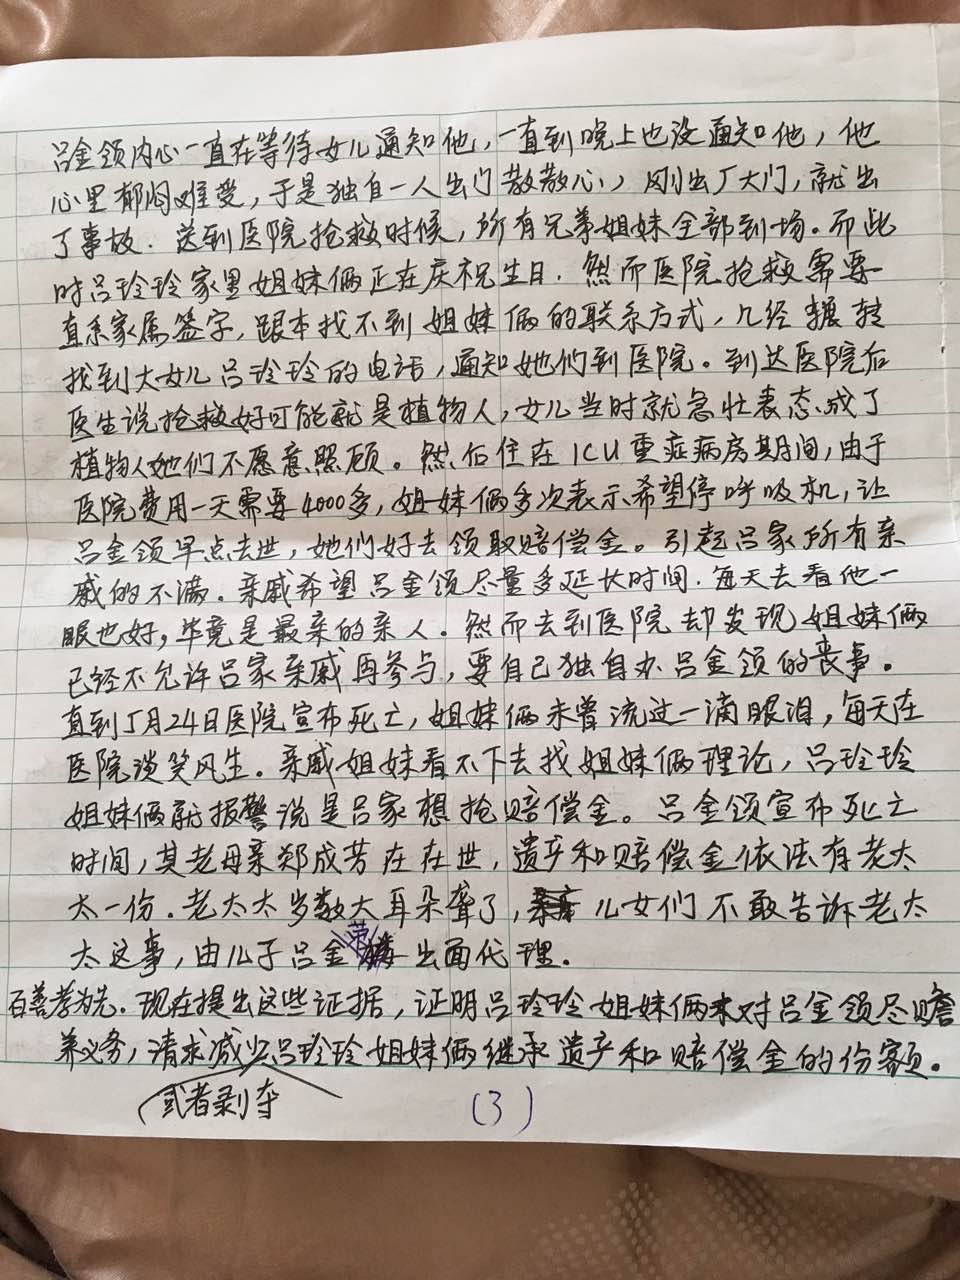 吕金领内心一直在等待女儿通知他，一直到晚上也没通知他，他
心里郁闷难受，于是独自一人出门散散心，刚出厂大门，就出
了事故.送到医院抢救时候，所有兄弟姐妹全部到场。而此
时吕玲玲家里姐妹俩正在庆祝生日.然而医院抢救需要
直系家属签字，跟本找不到姐妹俩的联系方式，几经辗转
找到大女儿吕玲玲的电话，通知她们到医院。到达医院后
医生说抢救好可能就是植物人，女儿当时就急壮表态、成了
植物人她们不愿意照顾。然后住在ICU重症病房期间，由于
医院费用一天需要4000多，姐妹俩多次表示希望停呼吸机，让
吕金领早点去世，她们好去领取赔偿金。引起吕家所有亲
戚的不满.亲戚希望吕金领尽量多延长时间.每天去看他一
眼也好，毕竟是最亲的亲人.然而去到医院却发现姐妹俩
已经不允许吕家亲戚再参与，要自己独自办吕金领的丧事。
直到5月24日医院宣布死亡，姐妹俩未曾流过一滴眼泪，每天在
医院谈笑风生。亲戚姐妹看不下去找姐妹俩理论，吕玲玲
姐妹俩就报警说是吕家想抢赔偿金。吕金领宣布死亡
时间，其老母亲郑成芳在在世，遗产和赔偿金依法有老太
太一份.老太太岁数大耳朵聋了，儿女们不敢告诉老太
太这事，由儿子吕金荣出面代理.
百善孝为先.现在提出这些证据，证明吕玲玲姐妹俩未对吕金领尽赡
养义务，请求减少吕玲玲姐妹俩继承遗产和赔偿金的份额。
或者剥夺
(3)